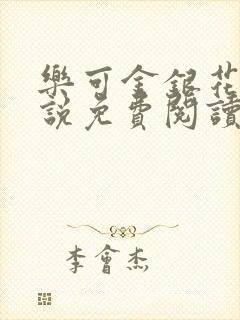 樂可金銀花
說免費閱讀
李會杰